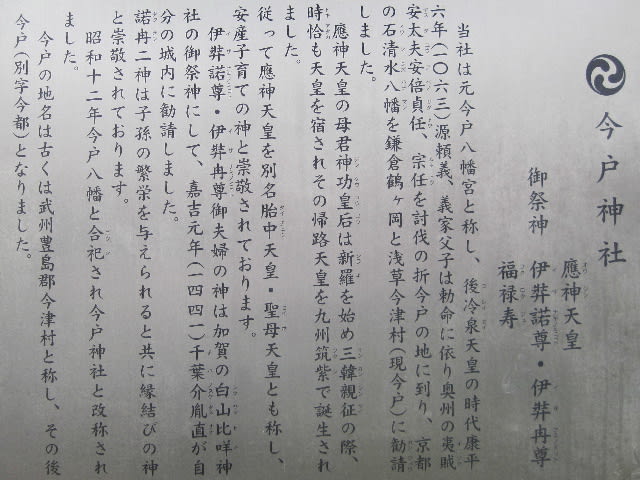 今戸神社
御祭神
應神天皇
伊弉諾尊・伊弉冉尊
福禄寿
当社は元今戸八幡宮と称し、後冷泉天皇の時代康平
六年(一〇六三)源頼義、義家父子は勅命に依り奥州の夷賊
安太夫安倍貞任、宗任を討伐の折今戸の地に到り、京都
の石清水八幡を鎌倉鶴ヶ岡と浅草今津村(現今戸)に勧請
しました。
應神天皇の母君神功皇后は新羅を始め三韓親征の際、
時恰も天皇を宿されその帰路天皇を九州筑紫で誕生され
ました。
従って應神天皇を別名胎中天皇・聖母天皇とも称し、
安産子育ての神と崇敬されております。
伊弉諾尊・伊弉冉尊御夫婦の神は加賀の白山比咩神
社の御祭神にして、嘉吉元年(一四四一)千葉介胤直が自
分の城内に勧請しました。
諾冉二神は子孫の繁栄を与えられると共に縁結びの神
と崇敬されております。
昭和十二年今戸八幡と合祀され今戸神社と改称され
ました。
今戸の地名は古くは武州豊島郡今津村と称し、その後
今戸(別字今都)となりました。